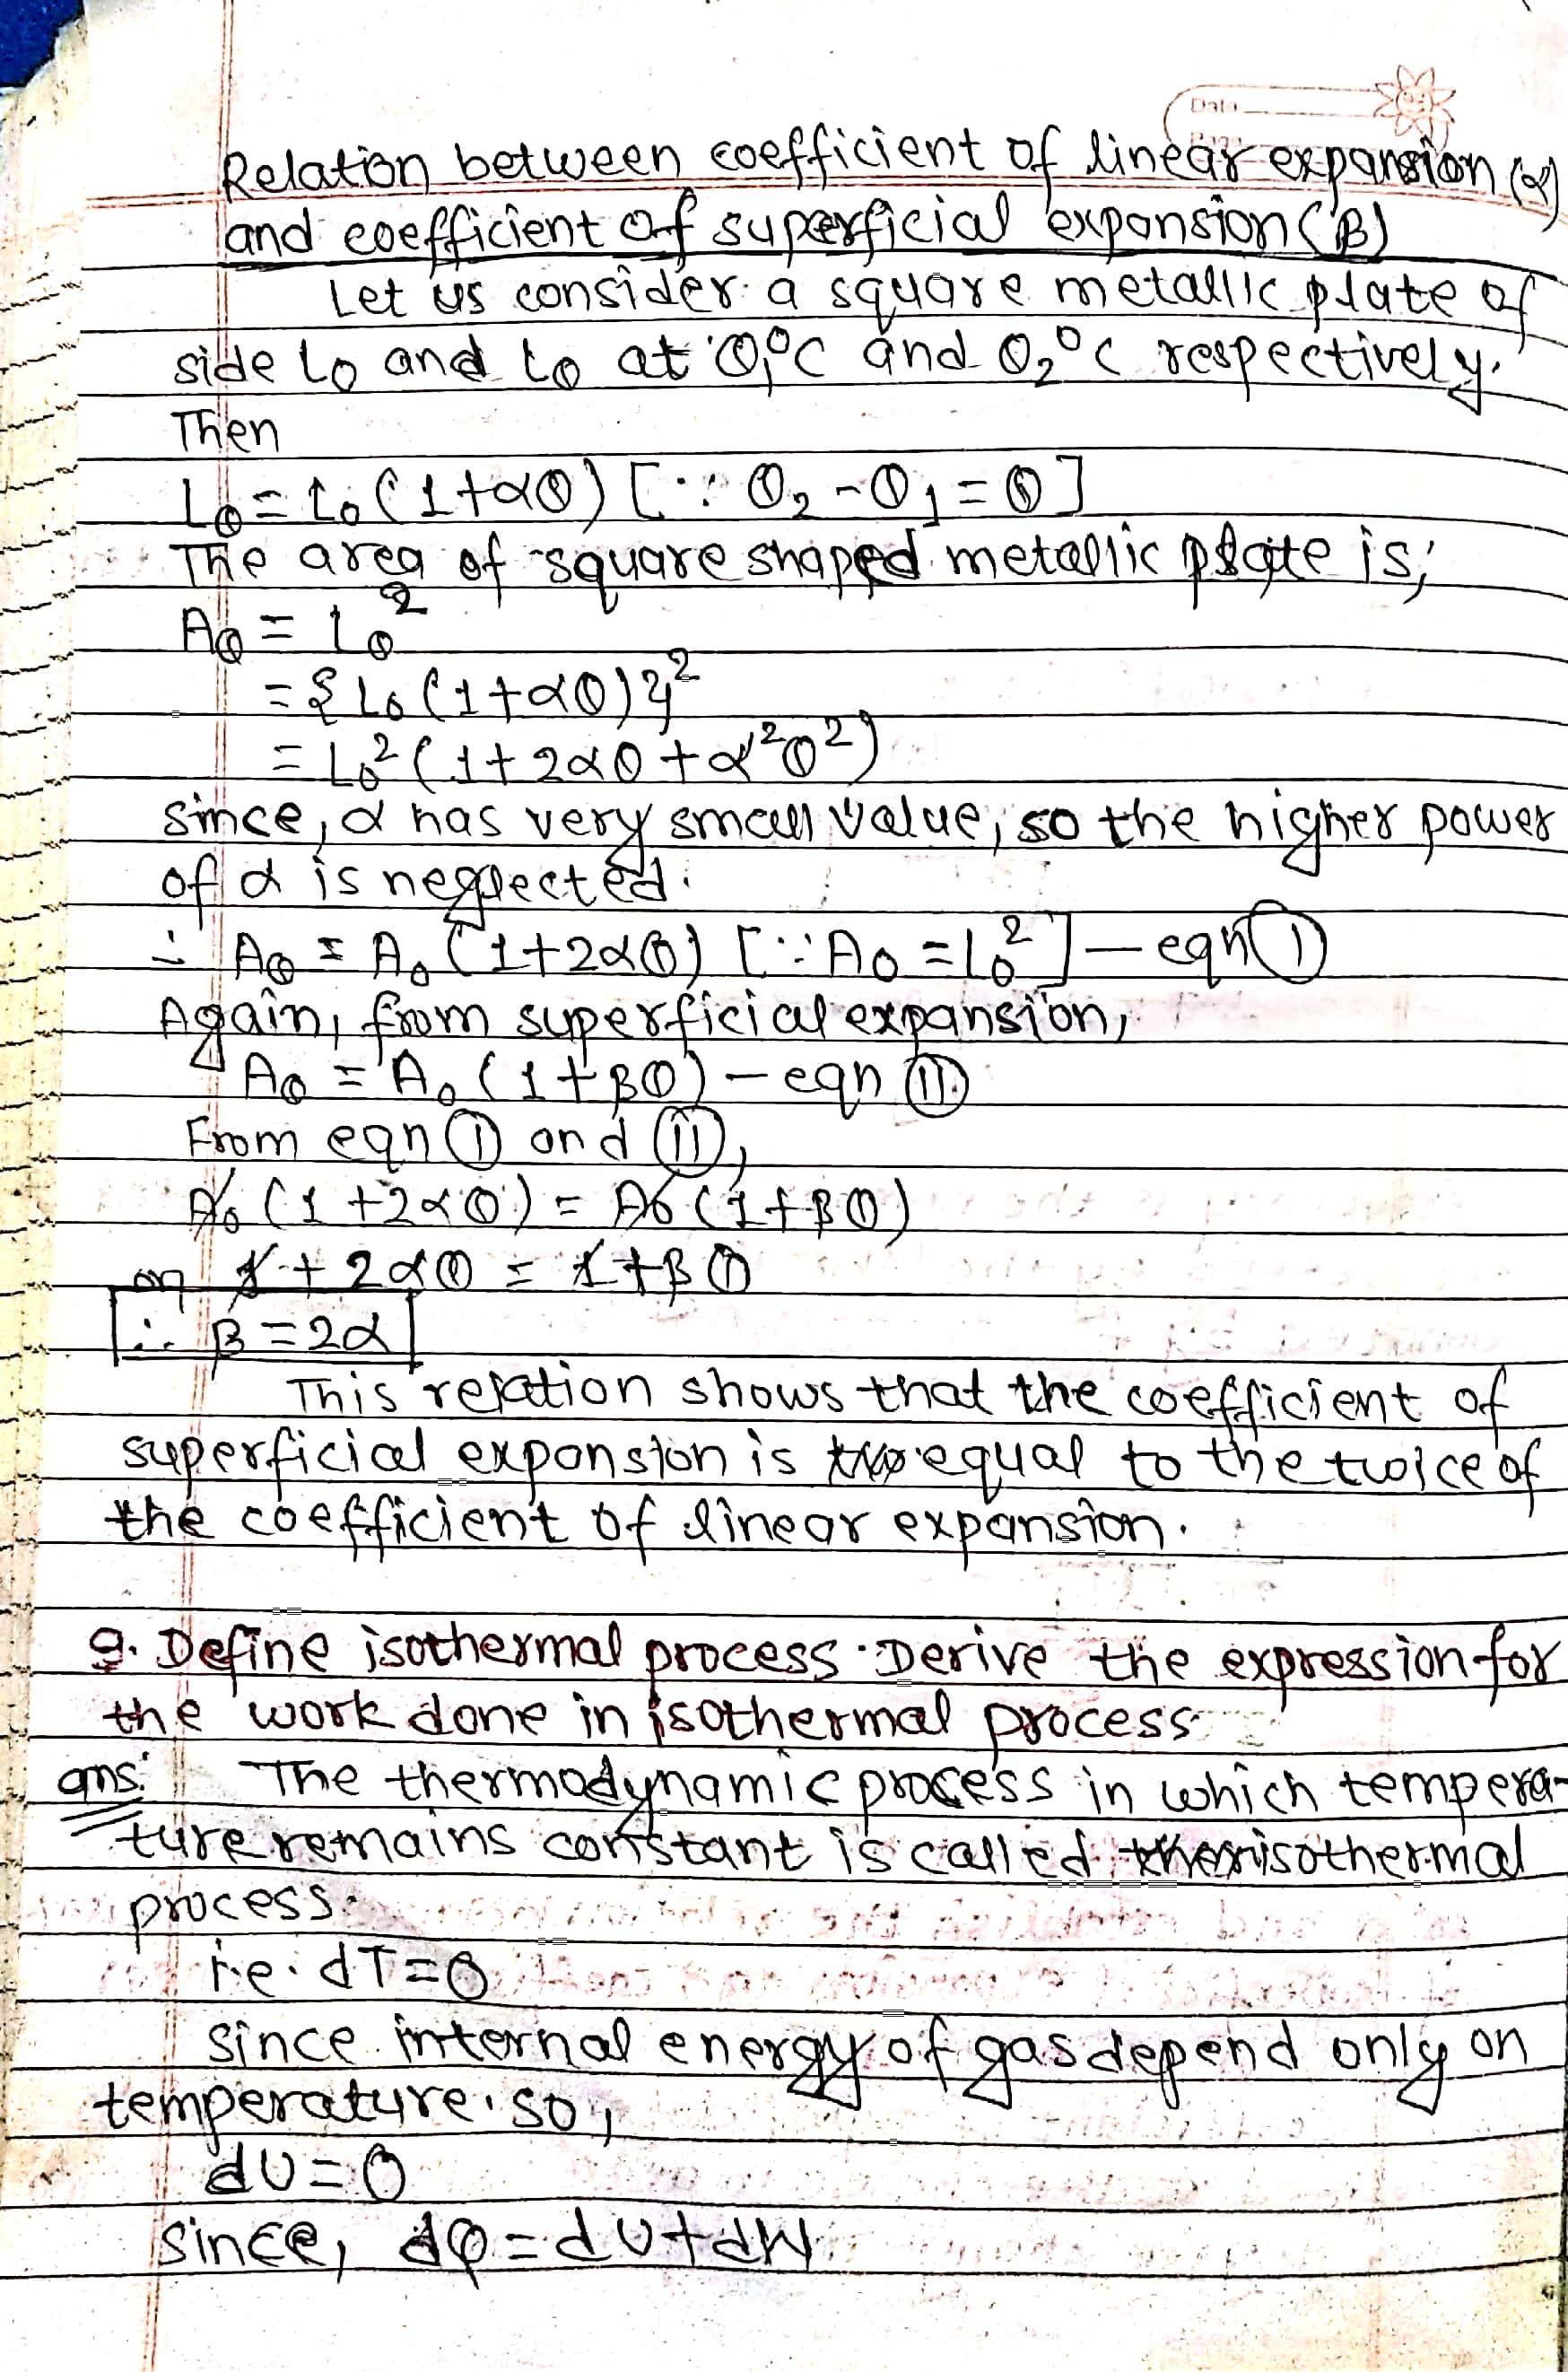 Date
Page
Relation between coefficient of linear expansion (α)
and coefficient of superficial expansion (β)
Let us consider a square metallic plate of
side L₀ and L_θ at θ₁°C and θ₂°C respectively.
Then
L_θ = L₀ (1+αθ) [∵ θ₂ - θ₁ = θ]
The area of square shaped metallic plate is,
A_θ = L_θ²
= {L₀ (1+αθ)}²
= L₀² (1+2αθ+α²θ²)
since, α has very small value, so the higher power
of α is neglected.
∴ A_θ = A₀ (1+2αθ) [∵ A₀ = L₀²] – eqn (i)
Again, from superficial expansion,
A_θ = A₀ (1+βθ) – eqn (ii)
From eqn (i) and (ii),
A₀ (1+2αθ) = A₀ (1+βθ)
or, 1+2αθ = 1+βθ
∴ β = 2α
This relation shows that the coefficient of
superficial expansion is equal to the twice of
the coefficient of linear expansion.
9. Define isothermal process. Derive the expression for
the work done in isothermal process.
ans: The thermodynamic process in which tempera-
ture remains constant is called isothermal
process.
i.e. dT=0
since internal energy of gas depend only on
temperature. so,
dU=0
since, dQ = dU+dW